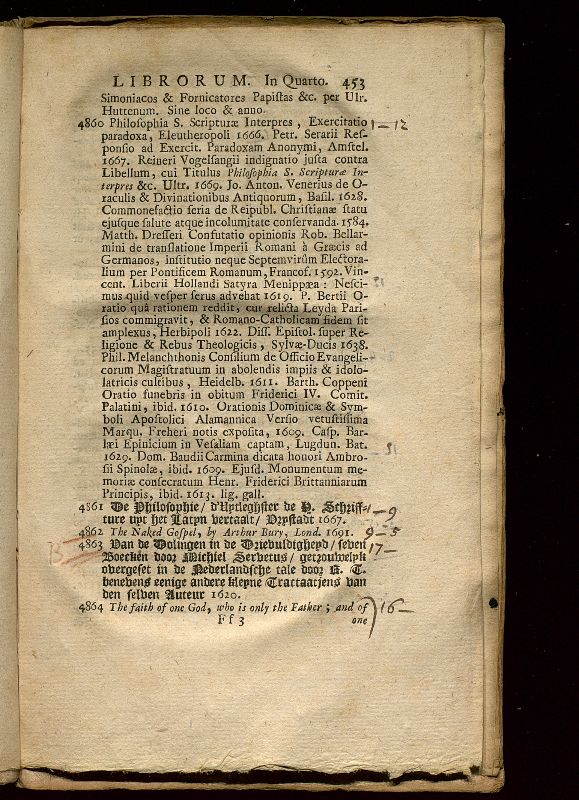 LIBRORUM. In Quarto. 453
Simoniacos & Fornicatores Papiſtas &c. per Ulr.
Huttenum. Sine loco & anno.
4860 Philoſophia S. Scripturæ Interpres, Exercitatio 1—12
paradoxa, Eleutheropoli 1666. Petr. Serarii Reſ-
ponſio ad Exercit. Paradoxam Anonymi, Amſtel.
1667. Reineri Vogelſangii indignatio juſta contra
Libellum, cui Titulus Philoſophia S. Scripturæ In-
terpres &c. Ultr. 1669. Jo. Anton. Venerius de O-
raculis & Divinationibus Antiquorum, Baſil. 1628.
Commonefactio ſeria de Reipubl. Chriſtianæ ſtatu
ejuſque ſalute atque incolumitate conſervanda. 1584.
Matth. Dreſſeri Confutatio opinionis Rob. Bellar-
mini de tranſlatione Imperii Romani à Græcis ad
Germanos, inſtitutio neque Septemvirûm Electora-
lium per Pontificem Romanum, Francof. 1592. Vin-
cent. Liberii Hollandi Satyra Menippæa: Neſci-
mus quid veſper ſerus advehat 1619. P. Bertii O-
ratio quâ rationem reddit, cur relicta Leyda Pari-
ſios commigravit, & Romano-Catholicam fidem ſit
amplexus, Herbipoli 1622. Diſſ. Epiſtol. ſuper Re-
ligione & Rebus Theologicis, Sylvæ-Ducis 1638.
Phil. Melanchthonis Conſilium de Officio Evangeli-
corum Magiſtratuum in abolendis impiis & idolo-
latricis cultibus, Heidelb. 1611. Barth. Coppeni
Oratio funebris in obitum Friderici IV. Comit.
Palatini, ibid. 1610. Orationis Dominicæ & Sym-
boli Apoſtolici Alamannica Verſio vetuſtiſſima
Marqu. Freheri notis expoſita, 1609. Caſp. Bar-
læi Epinicium in Veſaliam captam, Lugdun. Bat.
1629. Dom. Baudii Carmina dicata honori Ambro-
ſii Spinolæ, ibid. 1609. Ejuſd. Monumentum me-
moriæ conſecratum Henr. Friderici Brittanniarum
Principis, ibid. 1613. lig. gall.
4861 De Philoſophie/ d'Uytleghſter de H. Schrif-
ture uyt het Latyn vertaalt/ Vryſtadt 1667. 1—9
4862 The Naked Goſpel, by Arthur Bury, Lond. 1691. 9—5
4863 Van de Dolingen in de Drievuldigheyd/ ſeven 17—
Boecken door Michiel Servetus/ getrouwelyk
overgeſet in de Nederlandſche tale door R. T.
benebens eenige andere kleyne Tractaatjens van
den ſelven Auteur 1620.
4864 The faith of one God, who is only the Father; and of 16—
Ff 3 one